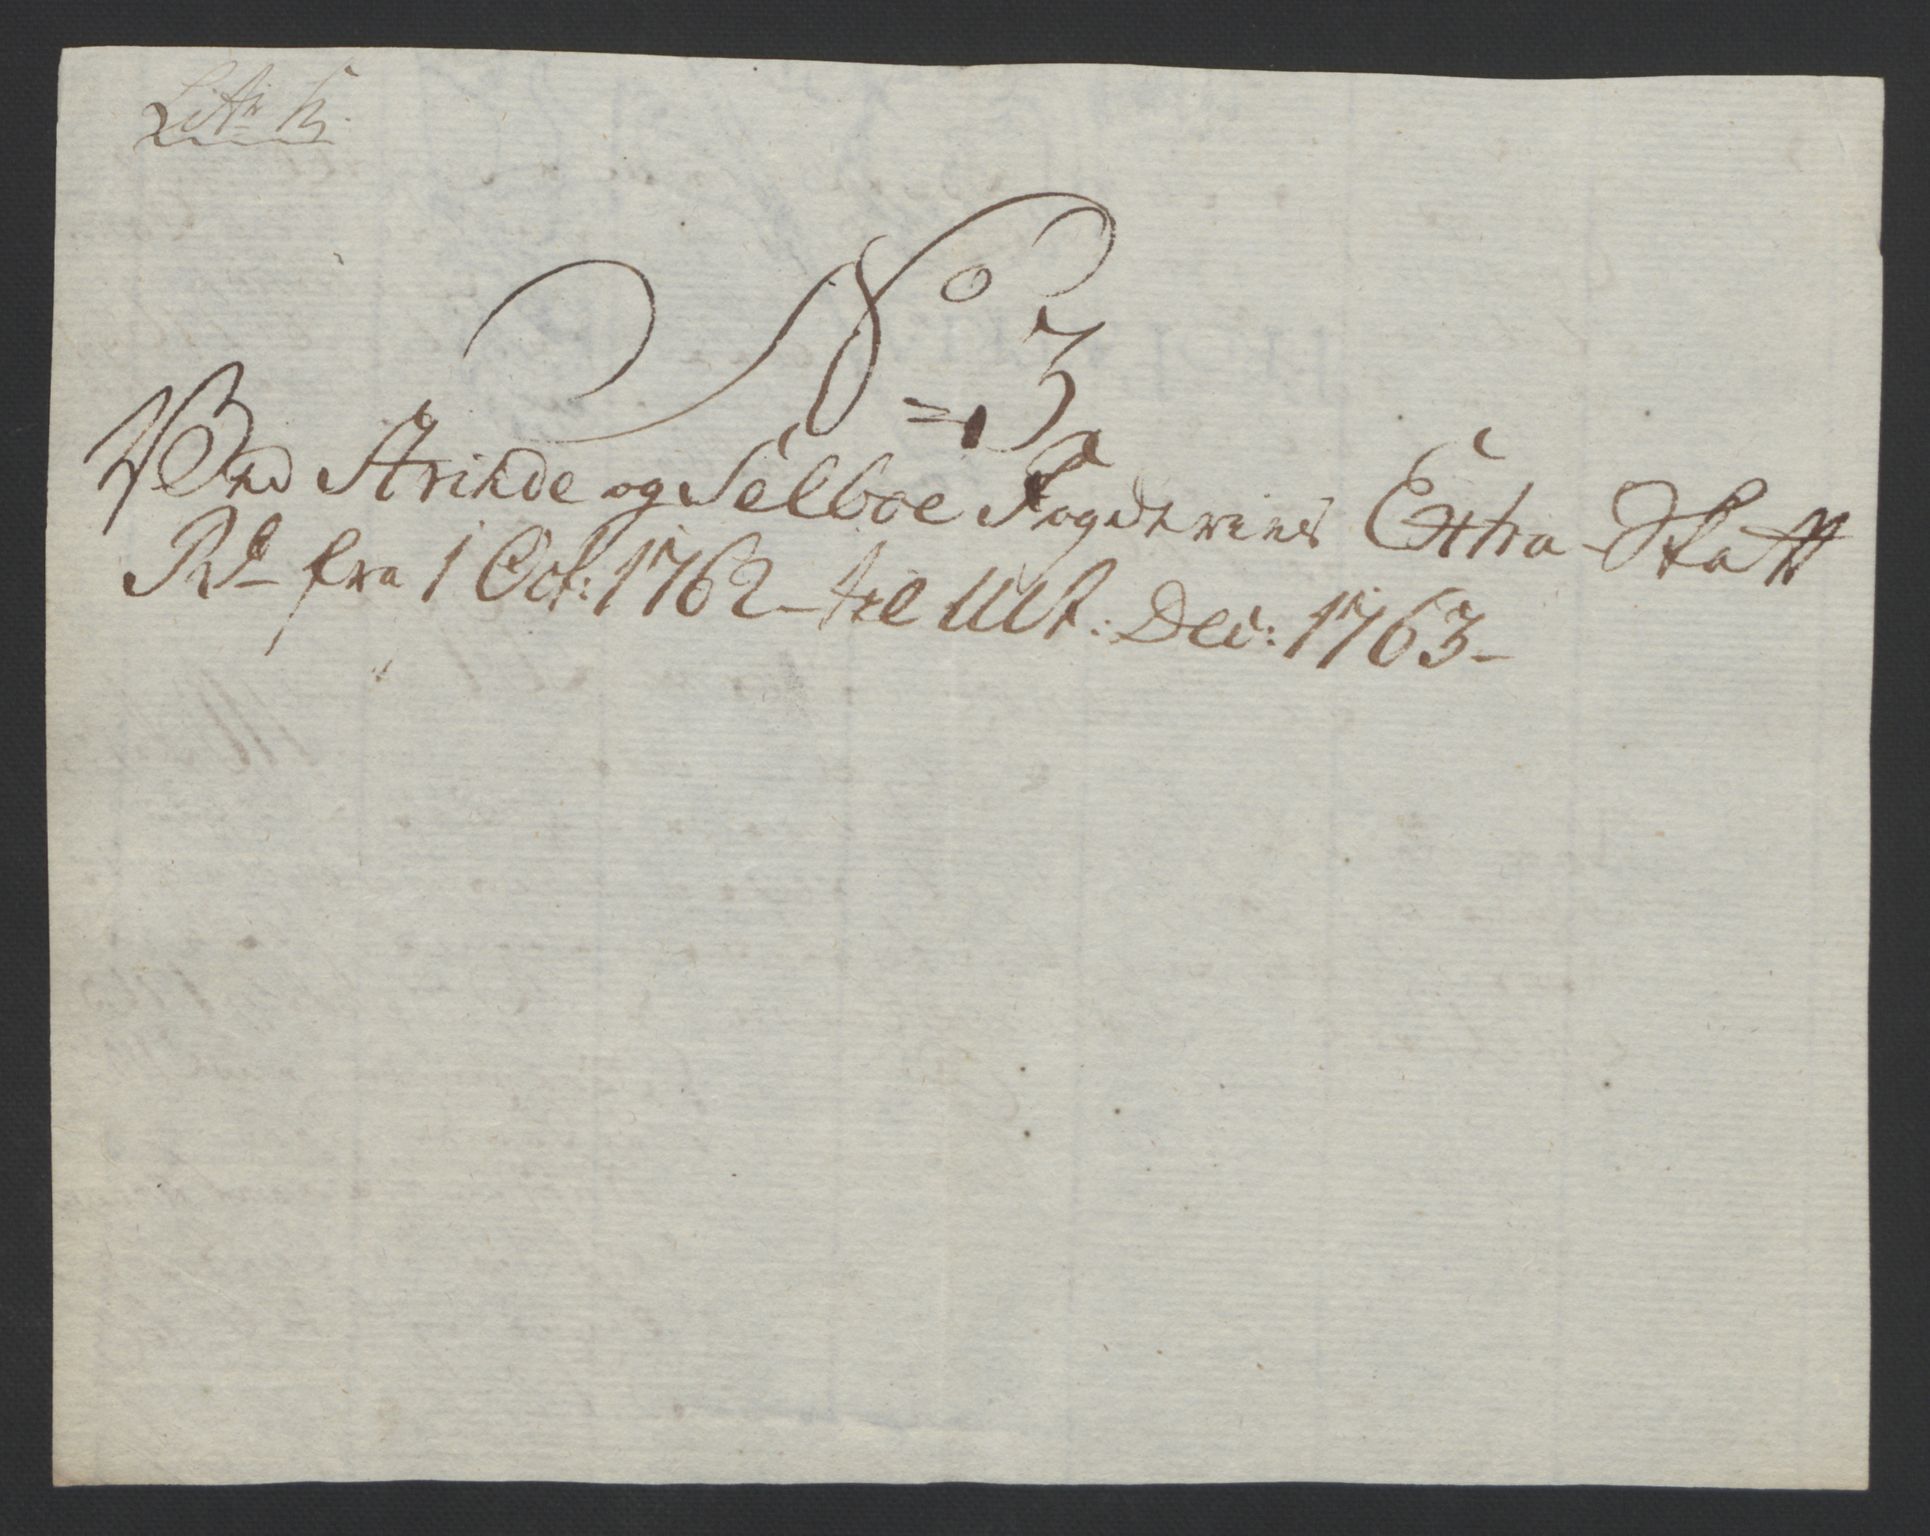 Litr K.
No 3
Ved Strinde og Selboe Fogderies Extra Skatt
Rd fra 1 Oct: 1762 til Ult: Dec: 1763